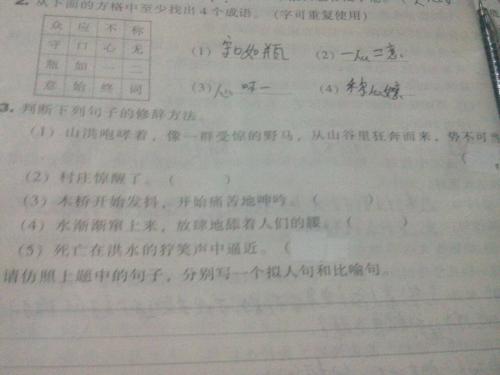 2. 从下面的方格中至少找出4个成语。(字可重复使用)
众 应 不 称
守 口 心 无
瓶 如 一 二
意 始 终 词
(1) 守口如瓶 (2) 一心二意
(3) 心口不一 (4) 称心
3. 判断下列句子的修辞方法。
(1) 山洪咆哮着，像一群受惊的野马，从山谷里狂奔而来，势不可当
(
(2) 村庄惊醒了。( )
(3) 木桥开始发抖，开始痛苦地呻吟。( )
(4) 水渐渐窜上来，放肆地舔着人们的腰 ( )
(5) 死亡在洪水的狞笑声中逼近。(
请仿照上题中的句子，分别写一个拟人句和比喻句。